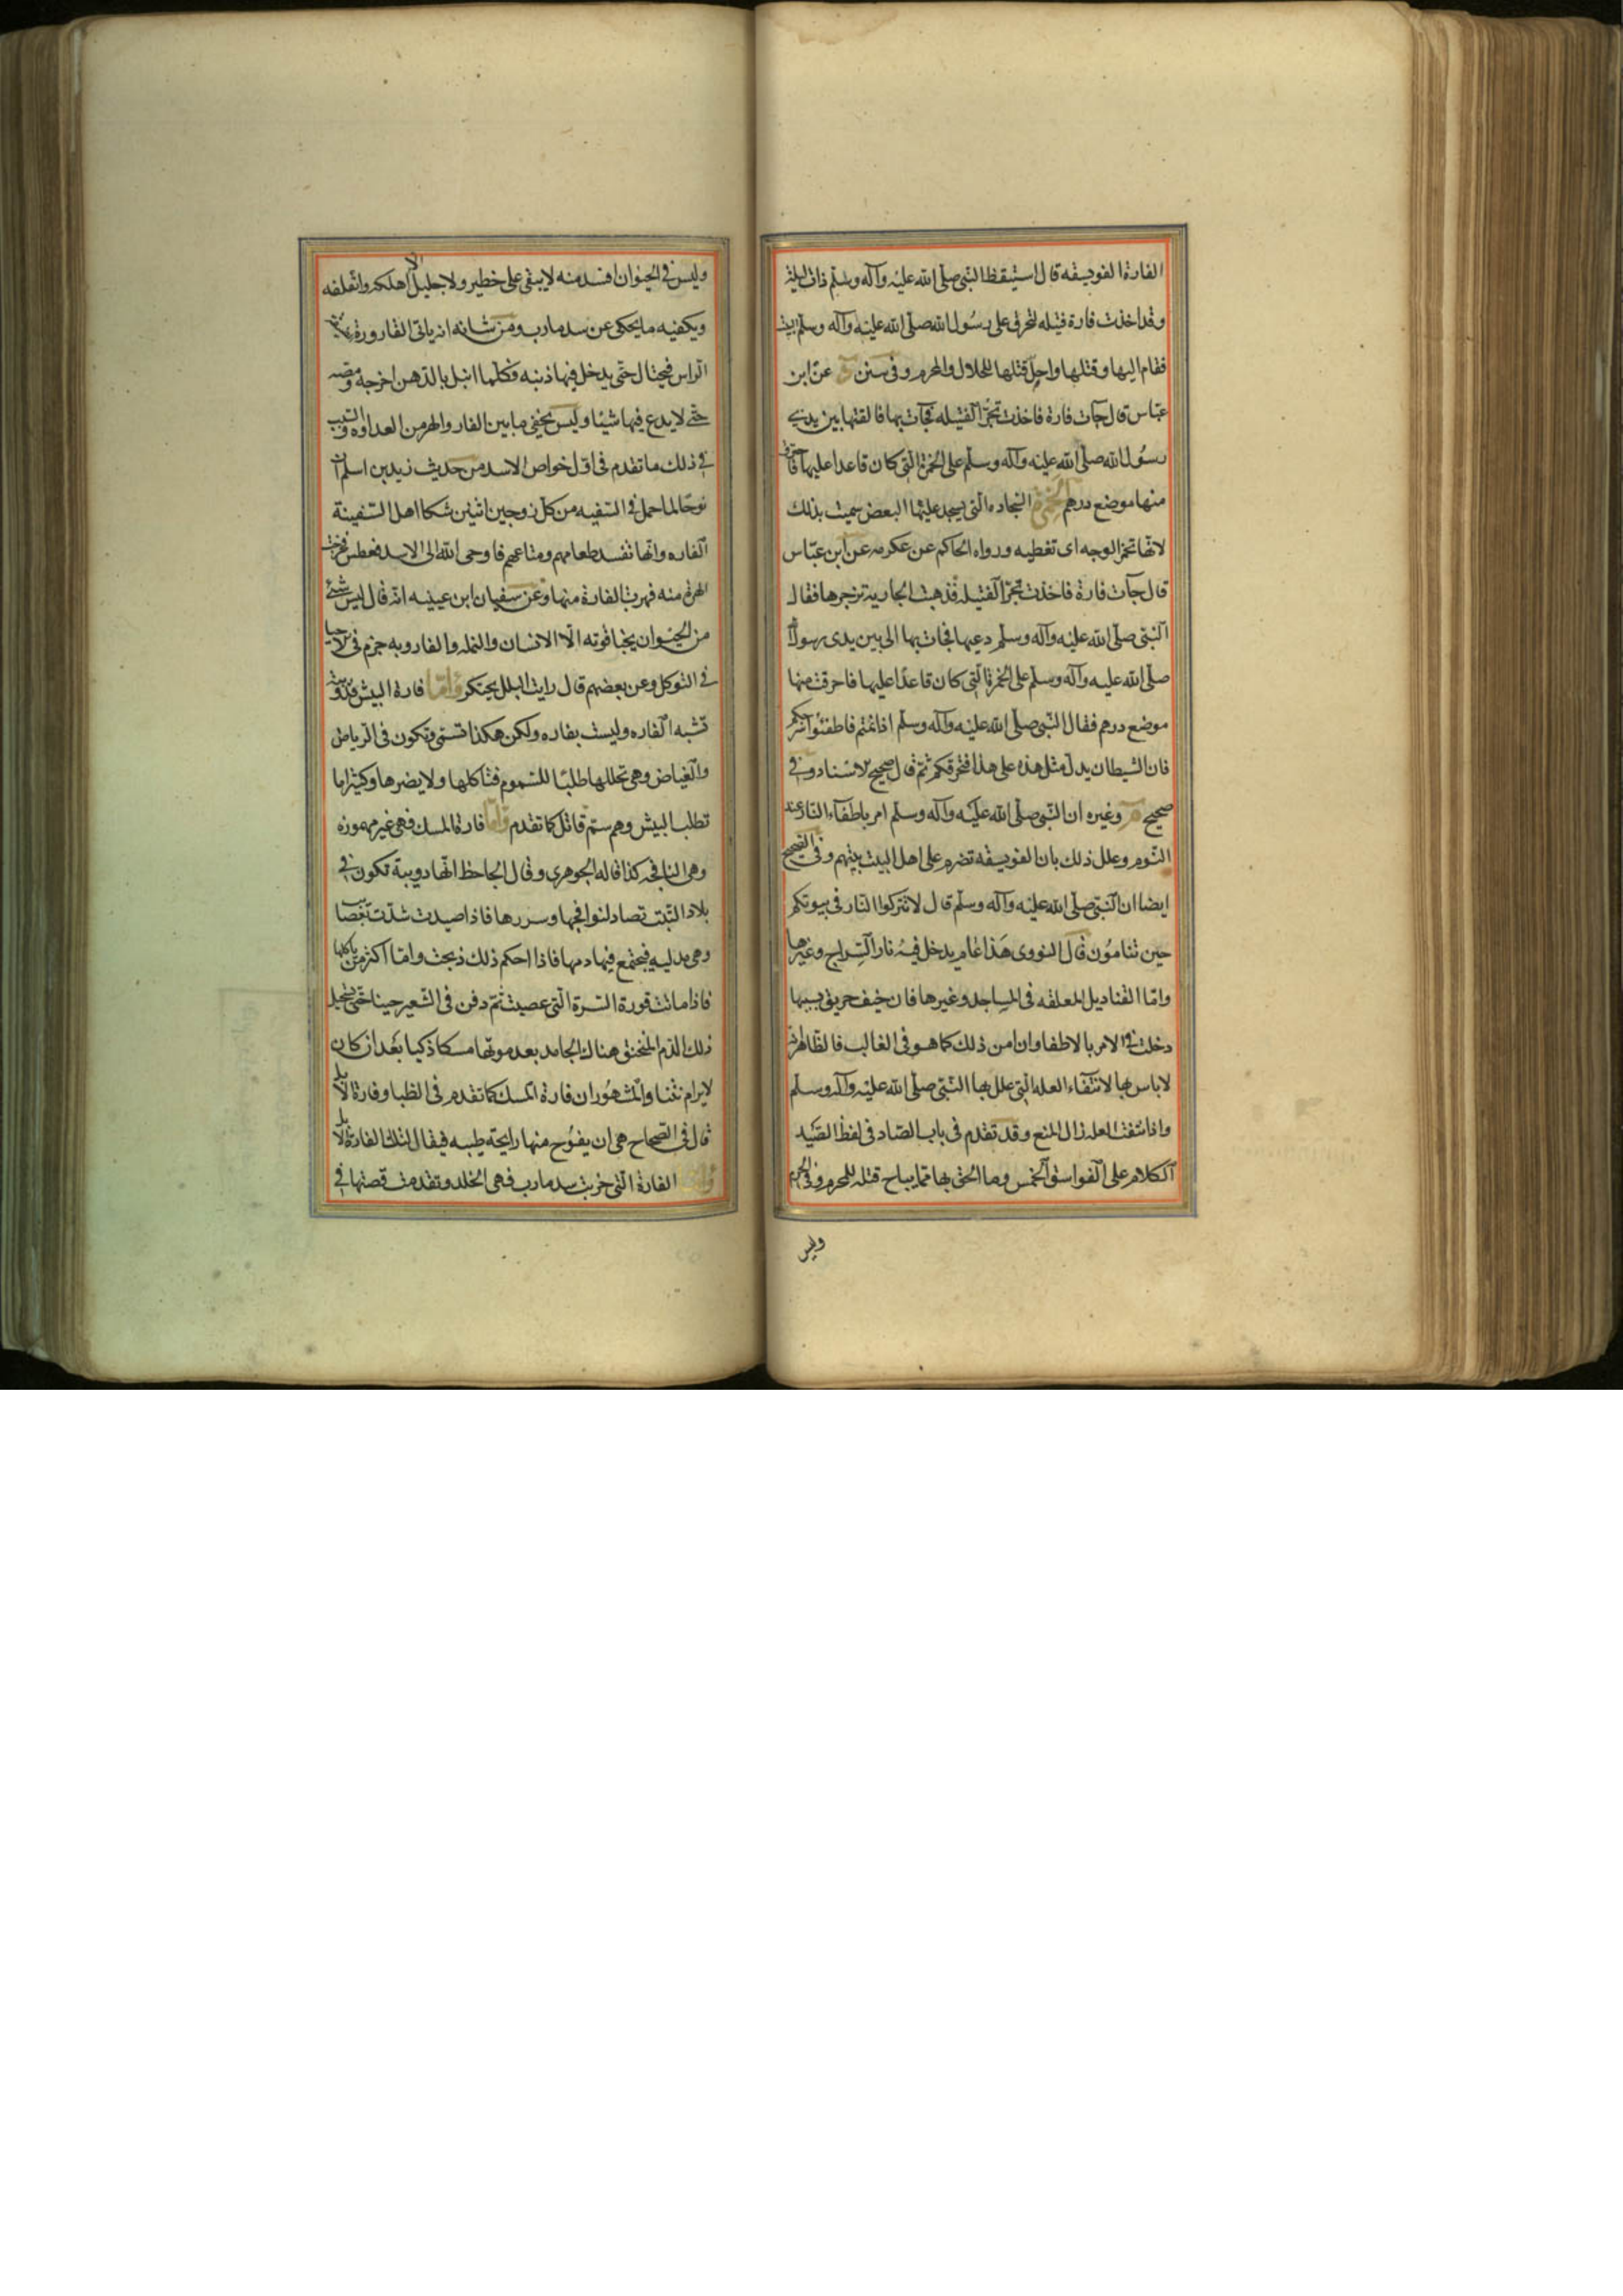 الفارة الفويسقه قال استيقظ النبي صلى الله عليه وآله وسلم ذات ليلة
وقد اخذت فارة فتيله لتحرق على رسول الله صلى الله عليه وآله وسلم البيت
فقام اليها وقتلها واحل قتلها للحلال والمحرم وفى سنن عن ابن
عباس قال جآت فارة فاخذت تجر الفتيله فجآت بها فالقتها بين يدى
رسول الله صلى الله عليه وآله وسلم على الخمرة التى كان قاعدا عليها فاحترق
منها موضع درهم الخمرة السجاده التى يسجد عليها البعض سميت بذلك
لانها تخمر الوجه اى تغطيه ورواه الحاكم عن عكرمه عن ابن عباس
قال جآت فارة فاخذت تجر الفتيله فذهبت الجارية تزجرها فقال
النبى صلى الله عليه وآله وسلم دعيها فجات بها الى بين يدى رسول الله
صلى الله عليه وآله وسلم على الخمرة التى كان قاعدا عليها فاحرقت منها
موضع درهم فقال النبى صلى الله عليه وآله وسلم اذا نمتم فاطفئوا سرجكم
فان الشيطان يدل مثل هذه على هذا فتحرقكم ثم قال صحيح الاسناد وفى
صحيح م وغيره ان النبى صلى الله عليه وآله وسلم امر باطفآء النار عند
النوم وعلل ذلك بان الفويسقه تضرم على اهل البيت بيتهم وفى الصحيح
ايضا ان النبى صلى الله عليه وآله وسلم قال لا تتركوا النار فى بيوتكم
حين تنامون قال النووى هذا عام يدخل فيه نار السراج وغيرها
واما القناديل المعلقه فى المساجد وغيرها فان خيف حريق بسببها
دخلت فى الامر بالاطفا وان امن ذلك كما هو فى الغالب فالظاهر انه
لا باس بها لانتفاء العله التى علل بها النبى صلى الله عليه وآله وسلم
واذا انتفت العله زال المنع وقد تقدم فى باب الصاد فى لفظ الصيد
الكلام على الفواسق الخمس وما الحق بها مما يباح قتله للمحرم وفى الحرم
وليس
وليس فى الحيوان افسد منه لا يبقى على خطير ولا جليل الا اهلكه واتلفه
ويكفيه ما يحكى عن سد مارب ومن شانه انه ياتى القارورة
الراس فيحتال حتى يدخل فيها ذنبه وكلما ابتل بالدهن اخرجه ومصه
حتى لا يدع فيها شيئا وليس يخفى ما بين الفار والهر من العداوه والسبب
فى ذلك ما تقدم فى اول خواص الاسد من حديث زيد بن اسلم ان
نوحا لما حمل فى السفينه من كل زوجين اثنين شكا اهل السفينة
الفاره وانها تفسد طعامهم ومتاعهم فاوحى الله الى الاسد فعطس فخرجت
الهرة منه فهربت الفارة منها وعن سفيان ابن عيينه انه قال ليس شئ
من الحيوان يخبا قوته الا الانسان والنمله والفار وبه جزم فى الاحيا
فى التوكل وعن بعضهم قال رايت البلبل يحتكر واما فارة البيش فدويبة
تشبه الفاره وليست بفاره ولكن هكذا تسمى وتكون فى الرياض
والغياض وهى تخللها طلبا للسموم فتاكلها ولا يضرها وكثيرا ما
تطلب البيش وهو سم قاتل كما تقدم واما فارة المسك فهى غير مهموزه
وهى النافجه كذا قاله الجوهرى وقال الجاحظ انها دويبة تكون فى
بلاد التبت تصاد لنوافجها وسررها فاذا صيدت شدت بعصايب
وهى مدليه فيجتمع فيها دمها فاذا احكم ذلك ذبحت وما اكثر من ياكلها
فاذا ماتت قورة السرة التى عصبت ثم دفن فى الشعير حينا حتى يستحيل
ذلك الدم المختنق هناك الجامد بعد موتها مسكا ذكيا بعد ان كان
لا يرام نتنا والمشهور ان فارة المسك كما تقدم فى الظبا وفارة الابل
قال فى الصحاح هى ان يفوح منها رايحة طيبه فيقال لتلك الفارة الابل
واما الفارة التى خربت سد مارب فهى الخلد وتقدمت قصتها فى